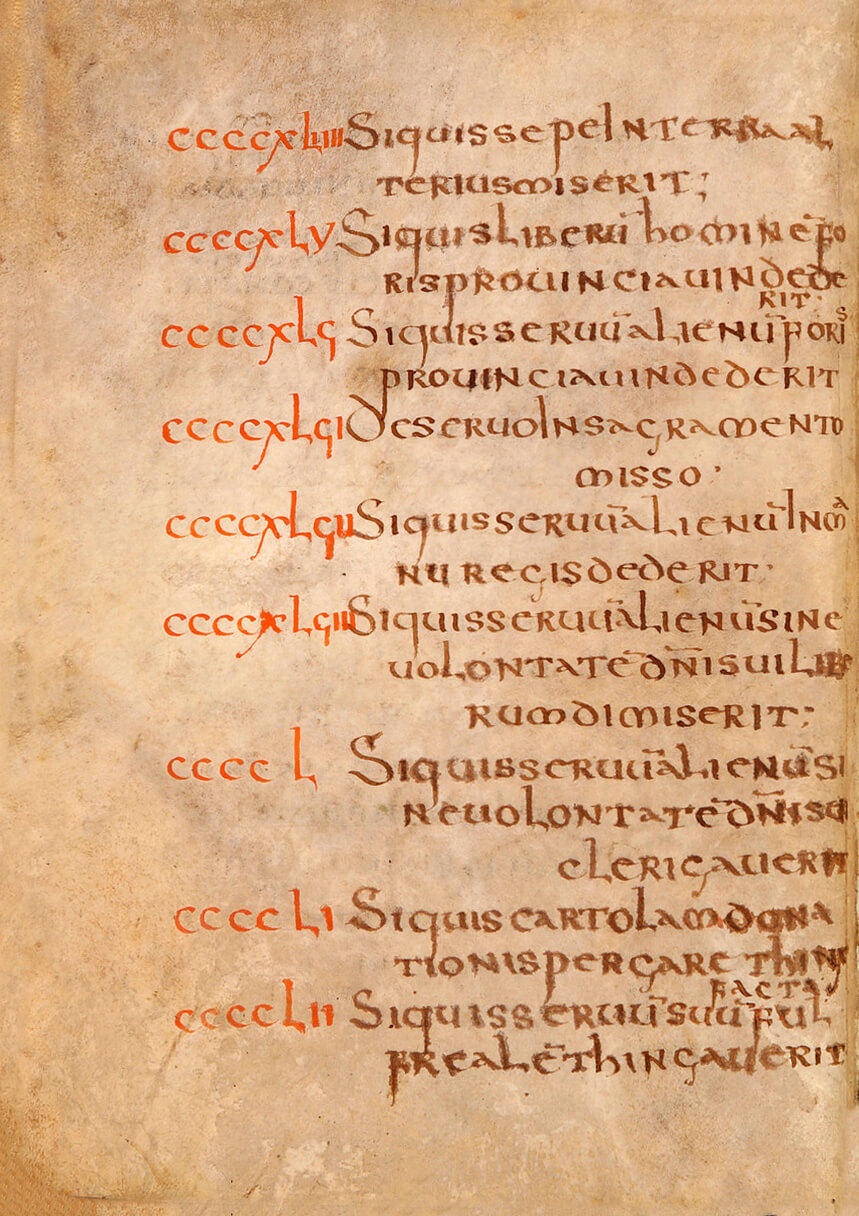 ccccxLiiii Siquis sepe In terra al
terius miserit;
ccccxLv Siquis liberū homine fo
ris prouincia uindede
rit·
ccccxLϛ Siquis seruū alienū foris
prouincia uindederit
ccccxLϛi De seruo In sagramento
misso·
ccccxLϛii Siquis seruū alienū In ma
nu regis dederit·
ccccxLϛiii Siquis seruū alienū sine
uolontatē dn̄i sui libe
rum dimiserit;
cccc L Siquis seruū alienū si
ne uolontatē dn̄i su
clerigauerit
cccc Li Siquis cartolam dona
tionis per gare thinx
facta·
ccccLii Siquis seruū suū ful
frealē thingauerit